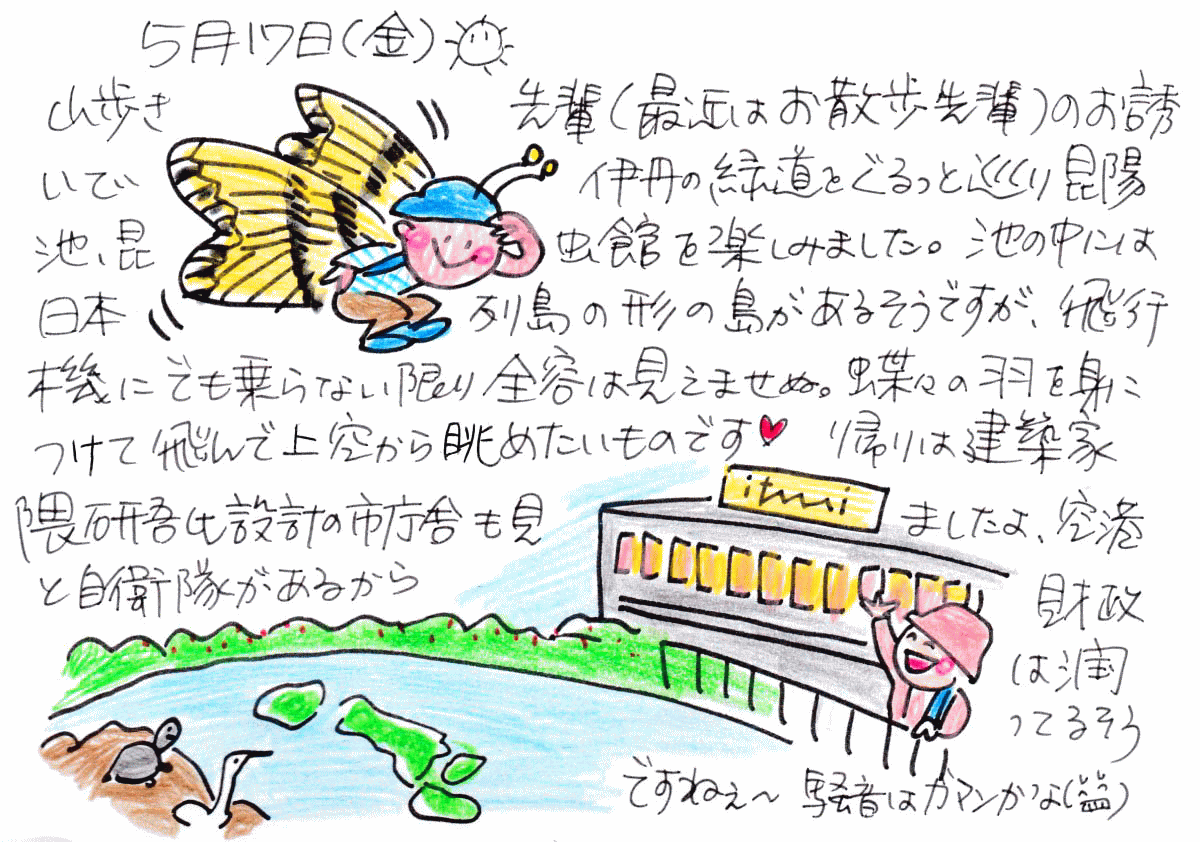 5月17日(金)
山歩き先輩(最近はお散歩先輩)のお誘
いで伊丹の緑道をぐるっと巡り昆陽
池、昆虫館を楽しみました。池の中には
日本列島の形の島があるそうですが、飛行
機にでも乗らない限り全容は見えませぬ。蝶々の羽を身に
つけて飛んで上空から眺めたいものです♥ 帰りは建築家
隈研吾氏設計の市庁舎も見ましたよ、空港
と自衛隊があるから財政
は潤
ってるそう
ですねぇ〜 騒音はガマンかな(笑)
itami